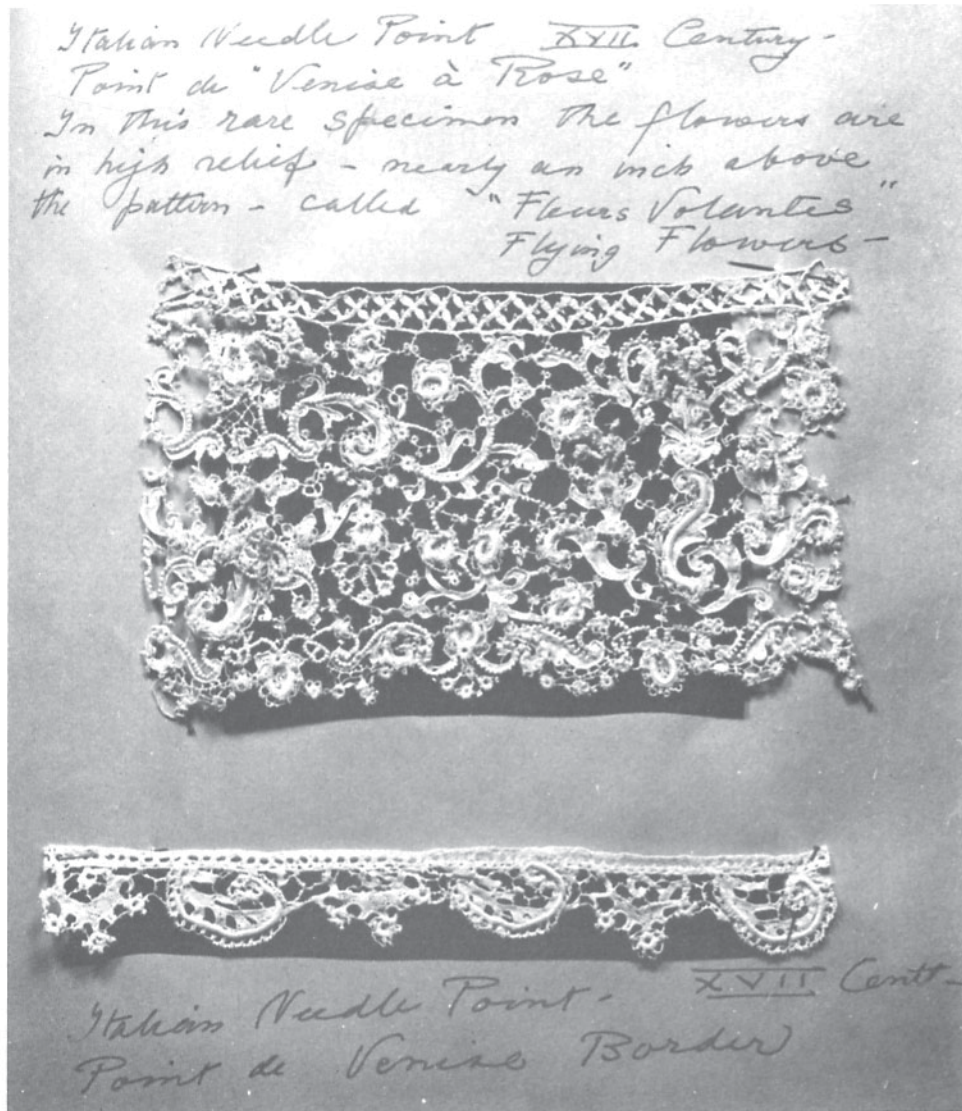 Italian Needle Point XVII Century -
Point de "Venise à Rose"
In this rare specimen the flowers are
in high relief - nearly an inch above
the pattern - called "Fleurs Volantes"
Flying Flowers -
Italian Needle Point - XVII Centt -
Point de Venise Border